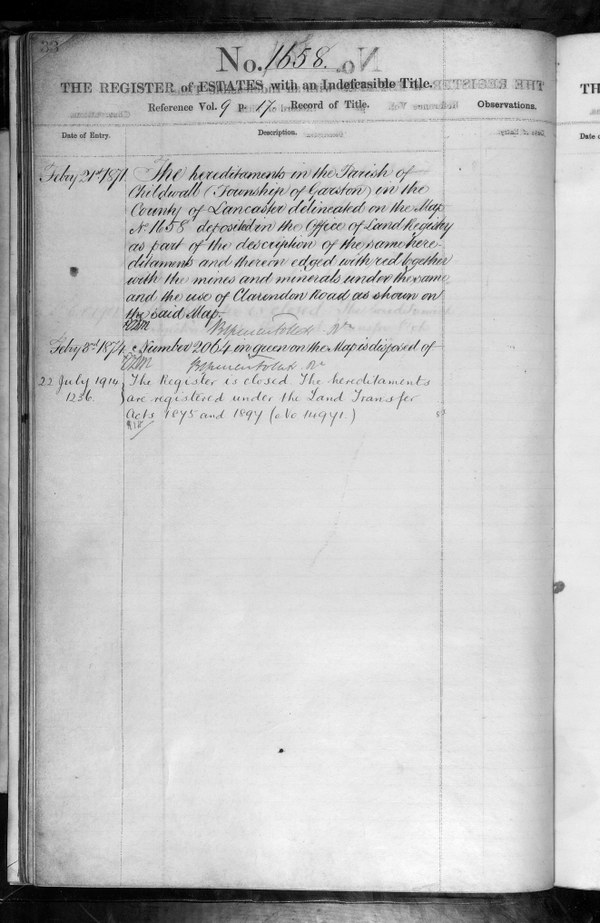 33
No. 1658.
THE REGISTER of ESTATES with an Indefeasible Title.
Reference Vol. 9 P. 17. Record of Title.
Observations.
Date of Entry.
Description.
Feby 21st 1871
The hereditaments in the Parish of
Childwall (Township of Garston) in the
County of Lancaster delineated on the Map
No. 1658 deposited in the Office of Land Registry
as part of the description of the same here-
ditaments and thereon edged with red together
with the mines and minerals under the same
and the use of Clarendon Road as shown on
the said Map.
Feby 3rd 1874
Number 2064 in green on the Map is disposed of
22 July 1914
1236.
The Register is closed. The hereditaments
are registered under the Land Transfer
Acts 1875 and 1897
TH
Date o